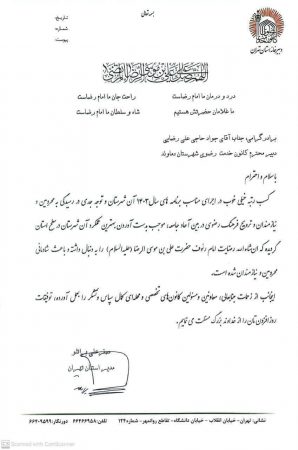 بسمه تعالی
تاریخ:
شماره:
پیوست:
دبیرخانه استان تهران
اللهم صل علی علی بن موسی الرضا المرتضی
درد و درمان ما امام رضاست
راحت جان ما امام رضاست
ما غلامان حضرتش هستیم
شاه و سلطان ما امام رضاست
برادر گرامی، جناب آقای جواد حاجی علی رضایی
دبیر محترم کانون خدمت رضوی شهرستان دماوند
با سلام و احترام
کسب رتبه خیلی خوب در اجرای مناسب برنامه های سال ۱۴۰۲ آن شهرستان و توجه جدی در رسیدگی به محرومین و
نیازمندان و ترویج فرهنگ رضوی در بین آحاد جامعه؛ موجب بدست آوردن بهترین عملکرد آن شهرستان در سطح استان
گردیده که ان‌شاءالله، رضایت امام رئوف حضرت علی بن موسی الرضا (علیه‌السلام) را به دنبال داشته و باعث شادمانی
محرومین و نیازمندان شده است.
اینجانب از زحمات جنابعالی، معاونین و مسئولین کانون‌های تخصصی و محله‌ای کمال سپاس و تشکر را بعمل آورده، توفیقات
روزافزون‌تان را از خداوند بزرگ مسئلت می نمایم.
مدیر استان تهران
نشانی: تهران- خیابان انقلاب - خیابان دانشگاه- تقاطع روانمهر- شماره ۱۲۴
تلفن: ۶۶۴۶۶۹۵۸
دورنگار: ۶۶۴۰۹۵۹۹
Scanned with CamScanner